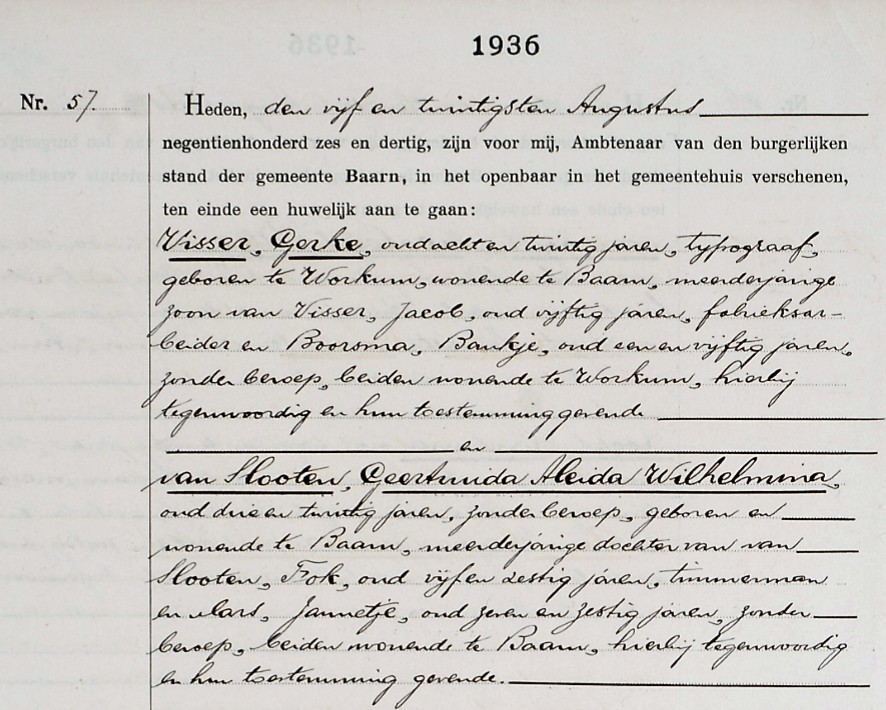 1936
Nr. 57. Heden, den vijf en twintigsten Augustus
negentienhonderd zes en dertig, zijn voor mij, Ambtenaar van den burgerlijken
stand der gemeente Baarn, in het openbaar in het gemeentehuis verschenen,
ten einde een huwelijk aan te gaan:
Visser, Gerke, oud acht en twintig jaren, typograaf,
geboren te Workum, wonende te Baarn, meerderjarige
zoon van Visser, Jacob, oud vijftig jaren, fabrieksar-
beider en Boorsma, Baukje, oud een en vijftig jaren,
zonder beroep, beiden wonende te Workum, hierbij
tegenwoordig en hun toestemming gevende
en
van Slooten, Geertruida Aleida Wilhelmina,
oud drie en twintig jaren, zonder beroep, geboren en
wonende te Baarn, meerderjarige dochter van van
Slooten, Fok, oud vijf en zestig jaren, timmerman
en Mars, Jannetje, oud zeven en zestig jaren, zonder
beroep, beiden wonende te Baarn, hierbij tegenwoordig
en hun toestemming gevende.